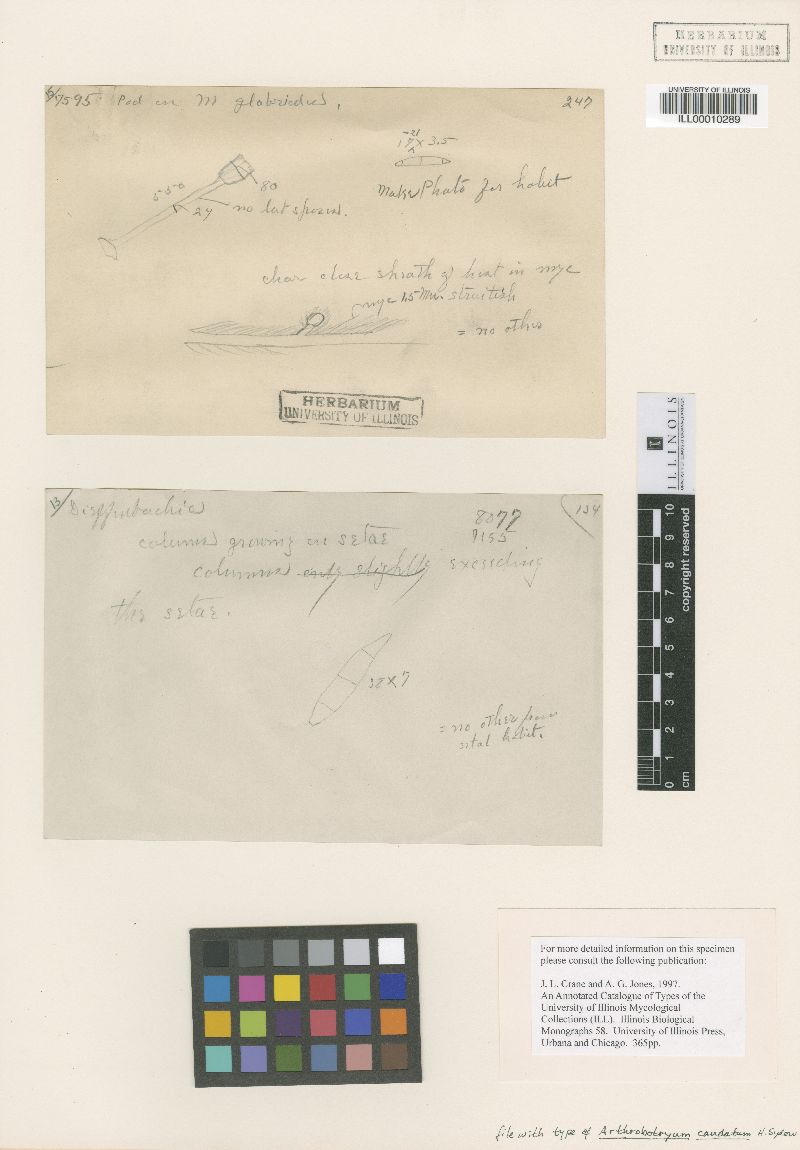 HERBARIUM
UNIVERSITY OF ILLINOIS
UNIVERSITY OF ILLINOIS
ILL00010289
7595 Pod on M glabridus, 247
-21
17 x 3.5
550
80
24 no lat spores.
Make Photo for habit
char close sheath of in myc
myc 1.5 Mm.
= no other
HERBARIUM
UNIVERSITY OF ILLINOIS
13/ Dieffenbachia
8077
134
7155
columns growing on setae
columns only slightly exceeding
the setae.
38 x 7
= no other
setal habit.
ILLINOIS
copyright reserved
0 1 2 3 4 5 6 7 8 9 10
cm
For more detailed information on this specimen
please consult the following publication:
J. L. Crane and A. G. Jones, 1997.
An Annotated Catalogue of Types of the
University of Illinois Mycological
Collections (ILL). Illinois Biological
Monographs 58. University of Illinois Press,
Urbana and Chicago. 365pp.
file with type of Arthrobotryum caudatum H. Sydow